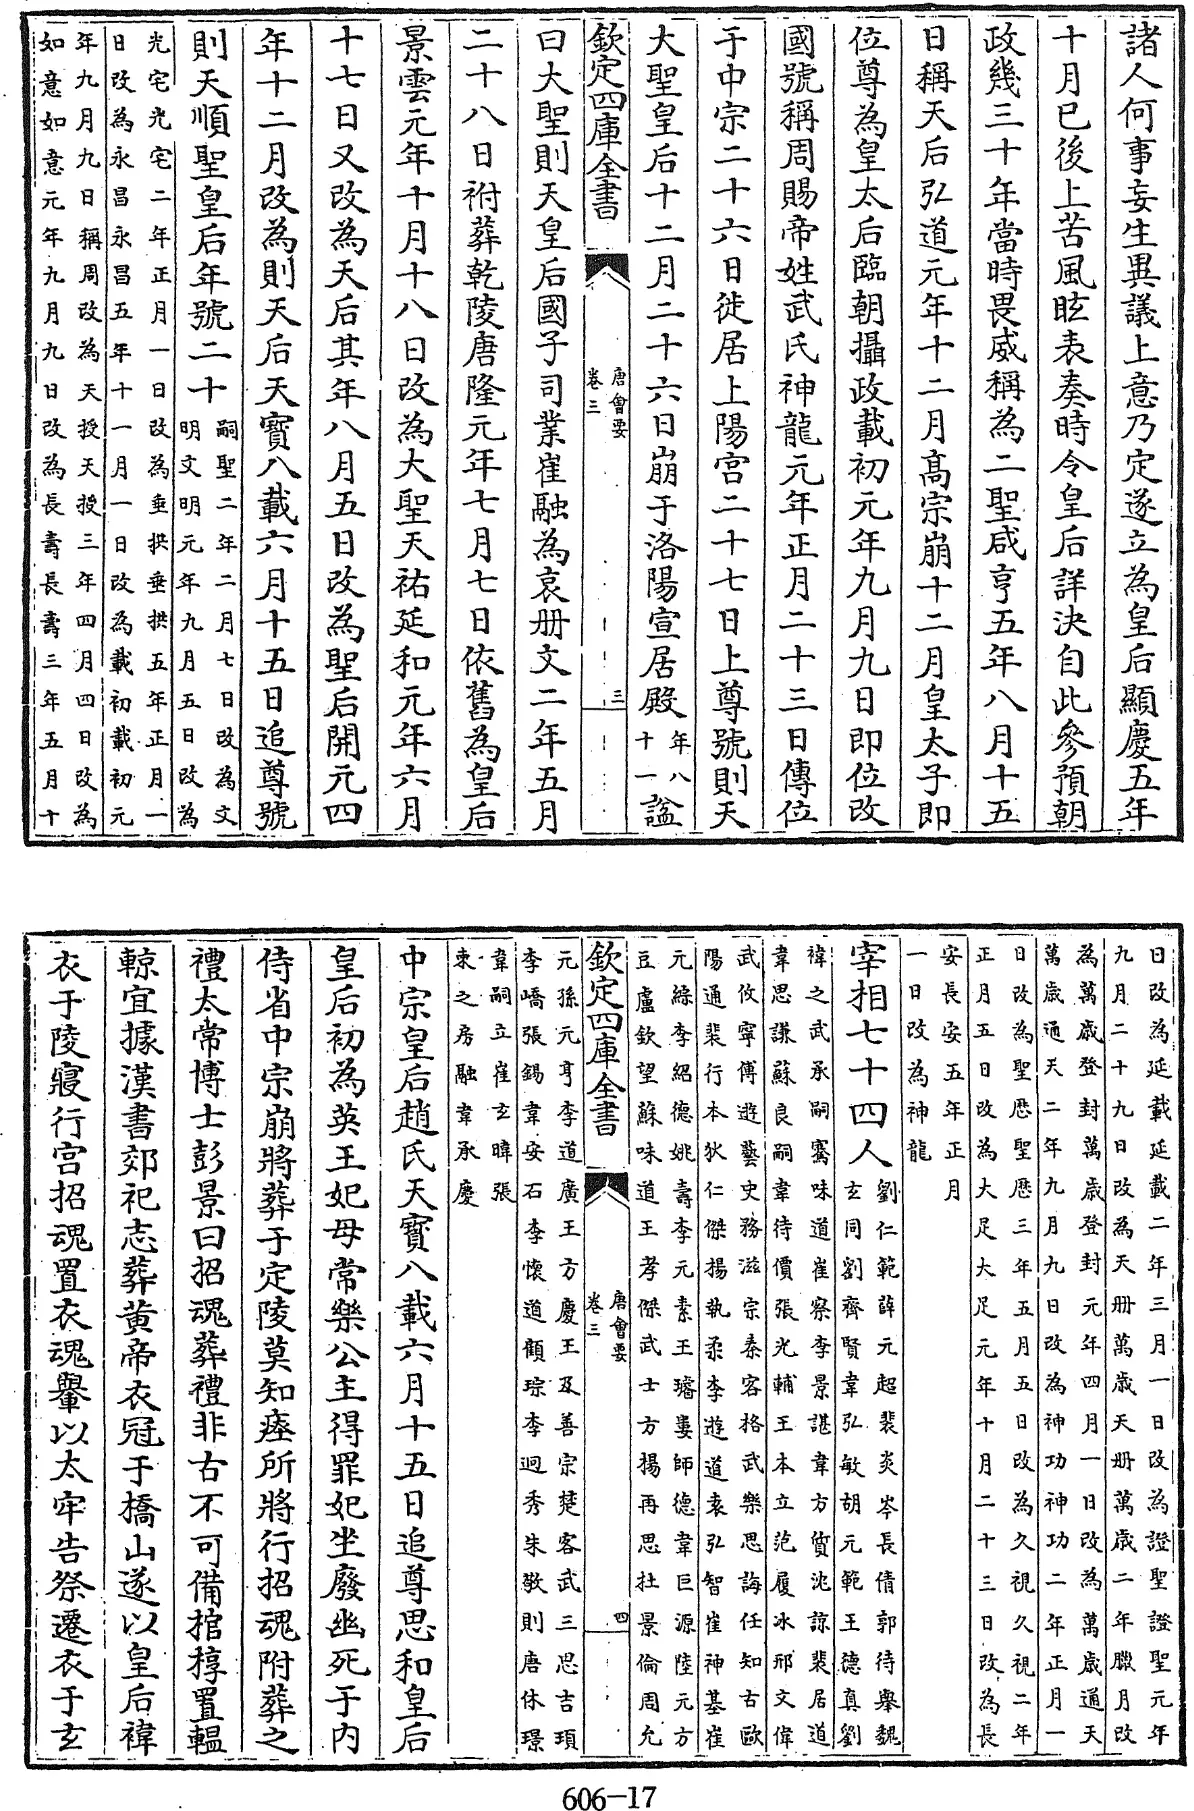 諸人何事妄生異議上意乃定遂立為皇后顯慶五年
十月已後上苦風眩表奏時令皇后詳決自此參預朝
政幾三十年當時畏威稱為二聖咸亨五年八月十五
日稱天后弘道元年十二月髙宗崩十二月皇太子即
位尊為皇太后臨朝攝政載初元年九月九日即位改
國號稱周賜帝姓武氏神龍元年正月二十三日傳位
于中宗二十六日徙居上陽宫二十七日上尊號則天
大聖皇后十二月二十六日崩于洛陽宣居殿年八十一諡
欽定四庫全書
唐會要
卷三
三
曰大聖則天皇后國子司業崔融為哀册文二年五月
二十八日祔葬乾陵唐隆元年七月七日依舊為皇后
景雲元年十月十八日改為大聖天祐延和元年六月
十七日又改為天后其年八月五日改為聖后開元四
年十二月改為則天后天寳八載六月十五日追尊號
則天順聖皇后年號二十
嗣聖二年二月七日改為文
明文明元年九月五日改為
光宅光宅二年正月一日改為垂拱垂拱五年正月一
日改為永昌永昌五年十一月一日改為載初載初元
年九月九日稱周改為天授天授三年四月四日改為
如意如意元年九月九日改為長壽長壽三年五月十
日改為延載延載二年三月一日改為證聖證聖元年
九月二十九日改為天册萬歲天册萬歲二年臘月改
為萬歲登封萬歲登封元年四月一日改為萬歲通天
萬歲通天二年九月九日改為神功神功二年正月一
日改為聖厯聖厯三年五月五日改為久視久視二年
正月五日改為大足大足元年十月二十三日改為長
安長安五年正月
一日改為神龍
宰相七十四人
劉仁範薛元超裴炎岑長倩郭待舉魏
玄同劉齊賢韋弘敏胡元範王德真劉
禕之武承嗣騫味道崔察李景諶韋方質沈諒裴居道
韋思謙蘇良嗣韋待價張光輔王本立范履冰邢文偉
武攸寧傅遊藝史務滋宗秦客格武樂思誨任知古歐
陽通裴行本狄仁傑楊執柔李遊道袁弘智崔神基崔
元綜李紹德姚壽李元素王璿婁師德韋巨源陸元方
豆盧欽望蘇味道王孝傑武士方楊再思杜景倫周允
欽定四庫全書
唐會要
卷三
四
元孫元亨李道廣王方慶王及善宗楚客武三思吉頊
李嶠張錫韋安石李懷道顧琮李迥秀朱敬則唐休璟
韋嗣立崔玄暐張
柬之房融韋承慶
中宗皇后趙氏天寳八載六月十五日追尊思和皇后
皇后初為英王妃母常樂公主得罪妃坐廢幽死于内
侍省中宗崩將葬于定陵莫知瘞所將行招魂附葬之
禮太常博士彭景曰招魂葬禮非古不可備棺椁置轀
輬宜據漢書郊祀志葬黄帝衣冠于橋山遂以皇后褘
衣于陵寢行宫招魂置衣魂轝以太牢告祭遷衣于玄
606-17